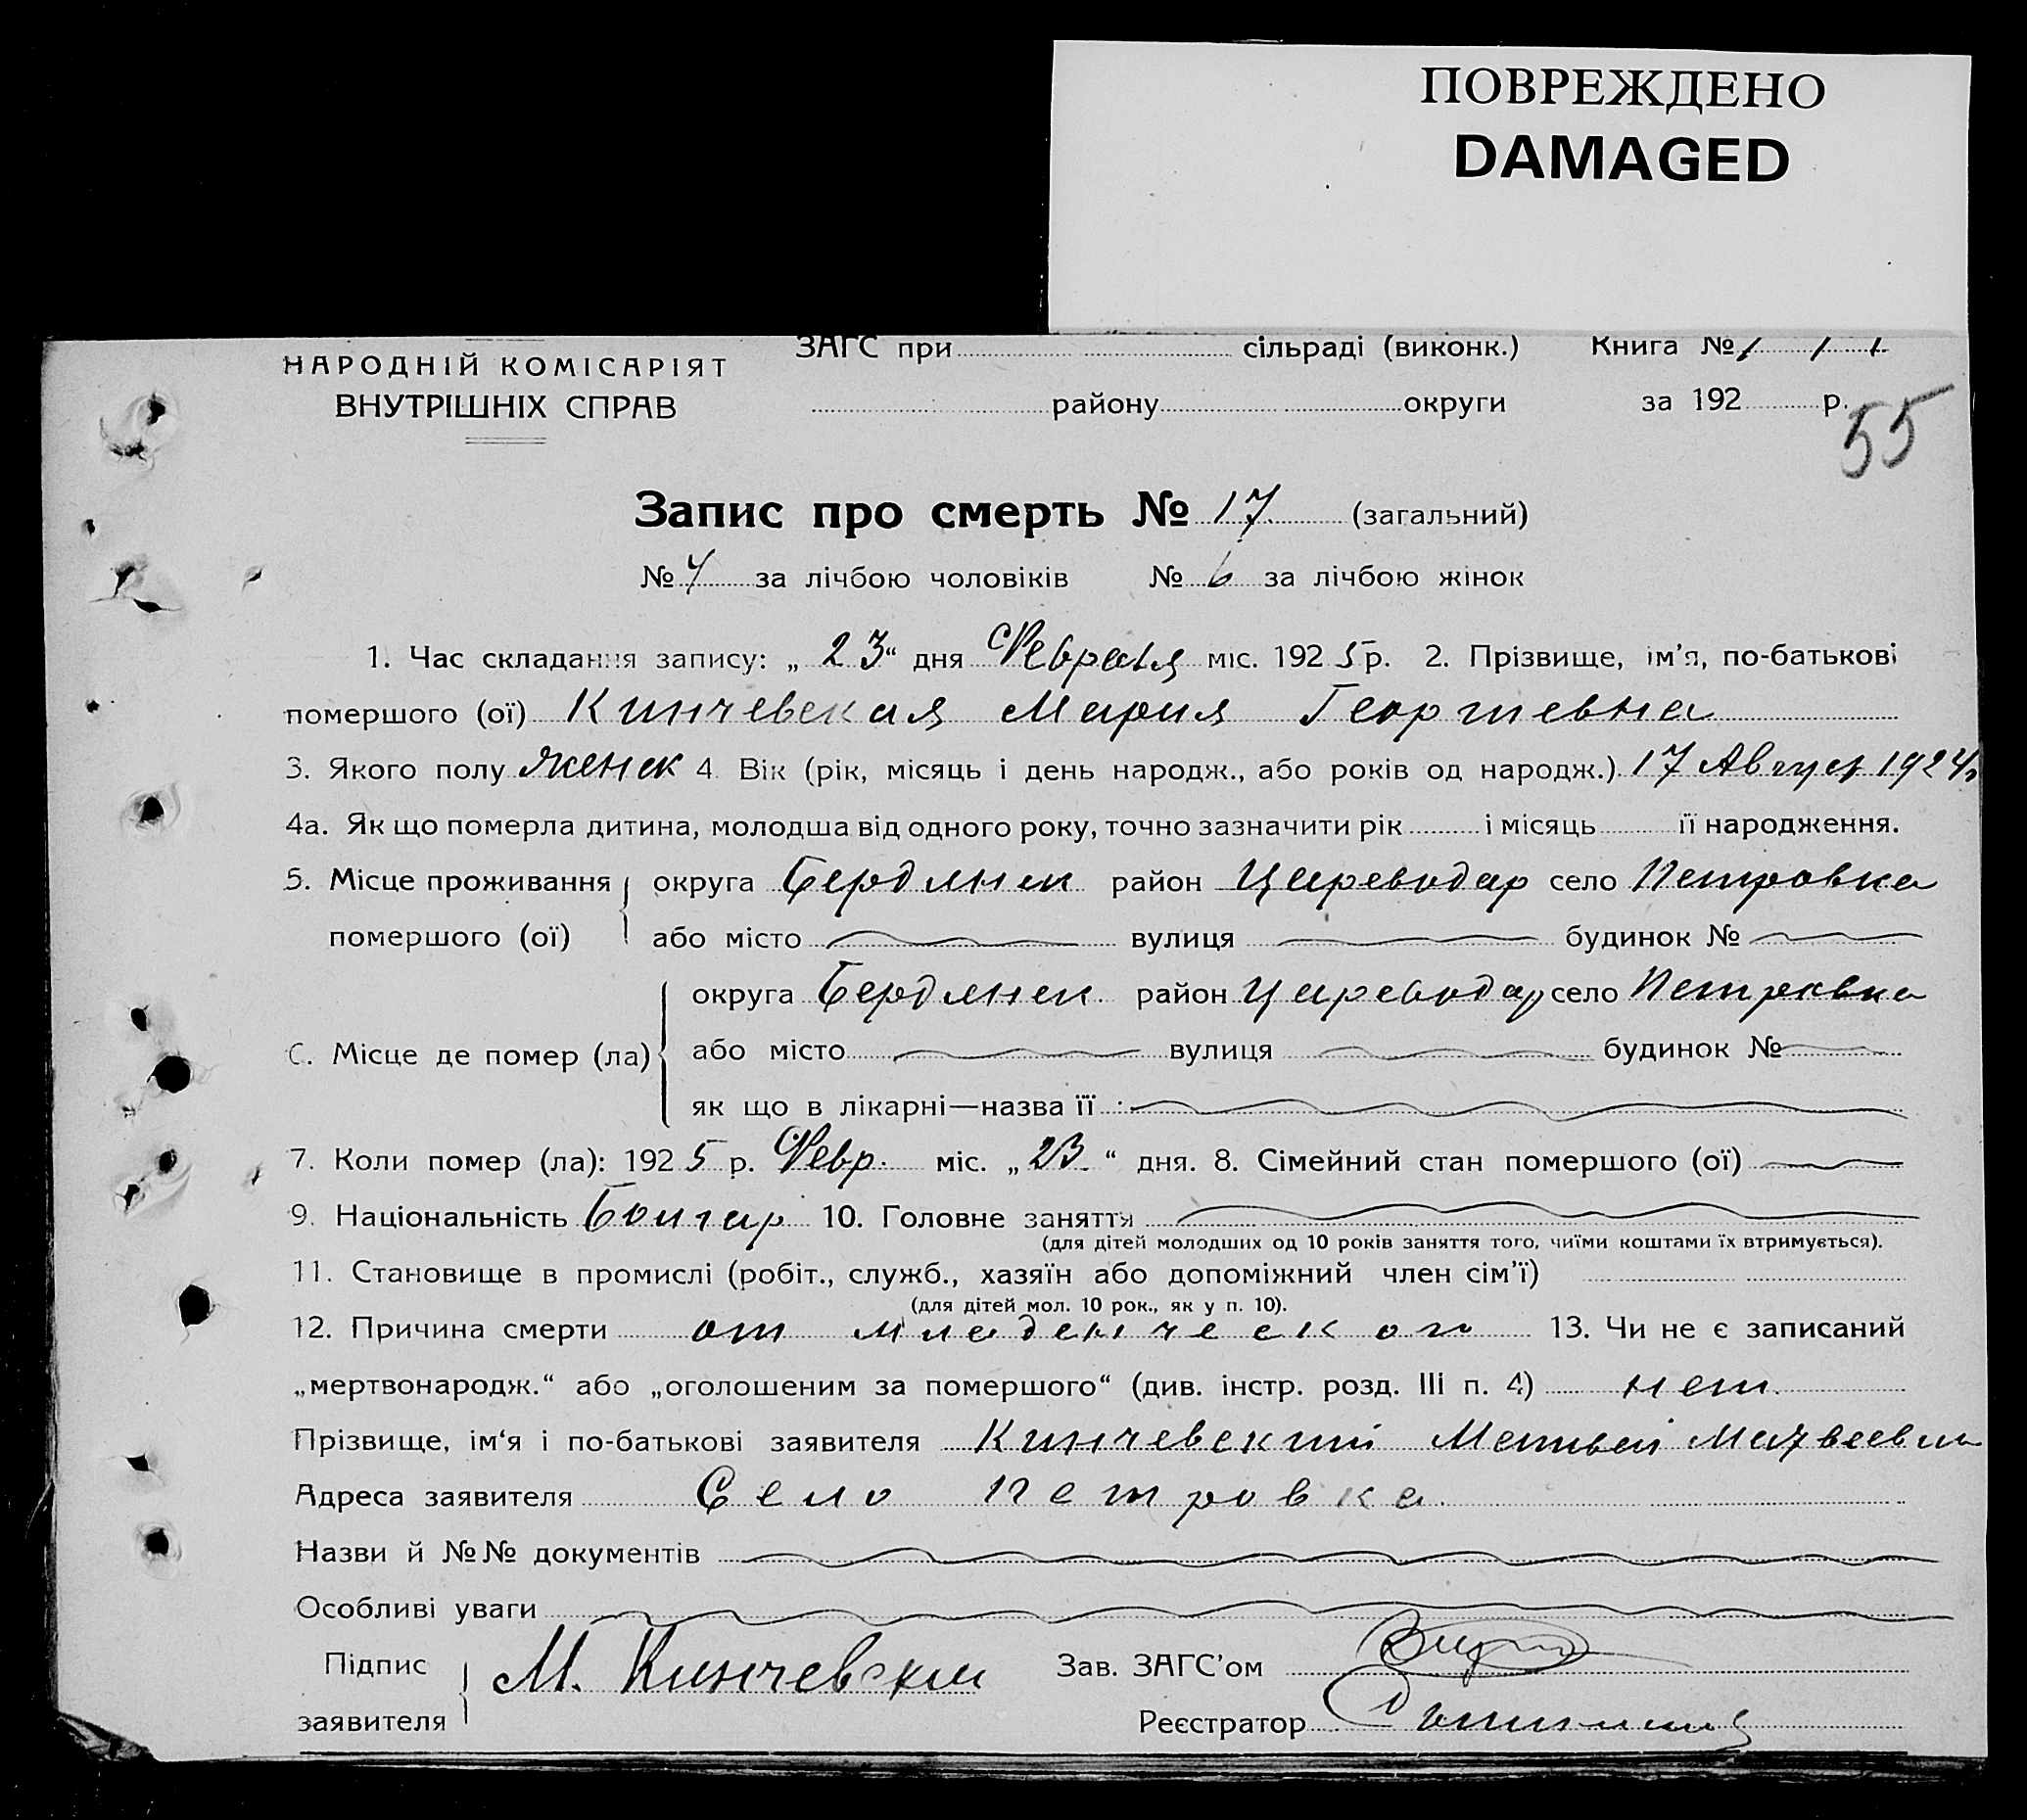 ПОВРЕЖДЕНО
DAMAGED
НАРОДНІЙ КОМІСАРІЯТ
ВНУТРІШНІХ СПРАВ
ЗАГС при сільраді (виконк.) Книга №
району округи за 192 р.
55
Запис про смерть № 17 (загальний)
№ за лічбою чоловіків № 6 за лічбою жінок
1. Час складання запису: „ 23 “ дня Февраля міс. 192 5 р. 2. Прізвище, ім’я, по-батькові
помершого (ої) Кинчевская Мария Георгиевна
3. Якого полу женск 4. Вік (рік, місяць і день народж., або років од народж.) 17 Август 1924
4а. Як що померла дитина, молодша від одного року, точно зазначити рік і місяць її народження.
5. Місце проживання округа Бердянск район Цареводар село Петровка
помершого (ої) або місто вулиця будинок №
округа Бердянск район Цареводар село Петровка
С. Місце де помер (ла) або місто вулиця будинок №
як що в лікарні—назва її
7. Коли помер (ла): 192 5 р. Февр. міс. „ 23 “ дня. 8. Сімейний стан помершого (ої)
9. Національність Болгар 10. Головне заняття
(для дітей молодших од 10 років заняття того, чиїми коштами їх втримується).
11. Становище в промислі (робіт., служб., хазяїн або допоміжний член сім’ї)
(для дітей мол. 10 рок., як у п. 10).
12. Причина смерти от младенческого 13. Чи не є записаний
„мертвонародж.“ або „оголошеним за помершого“ (див. інстр. розд. III п. 4) нет
Прізвище, ім‘я і по-батькові заявителя Кинчевский Матвей Матвеевич
Адреса заявителя Село Петровка.
Назви й №№ документів
Особливі уваги
Підпис
заявителя М. Кинчевский Зав. ЗАГС’ом
Реєстратор